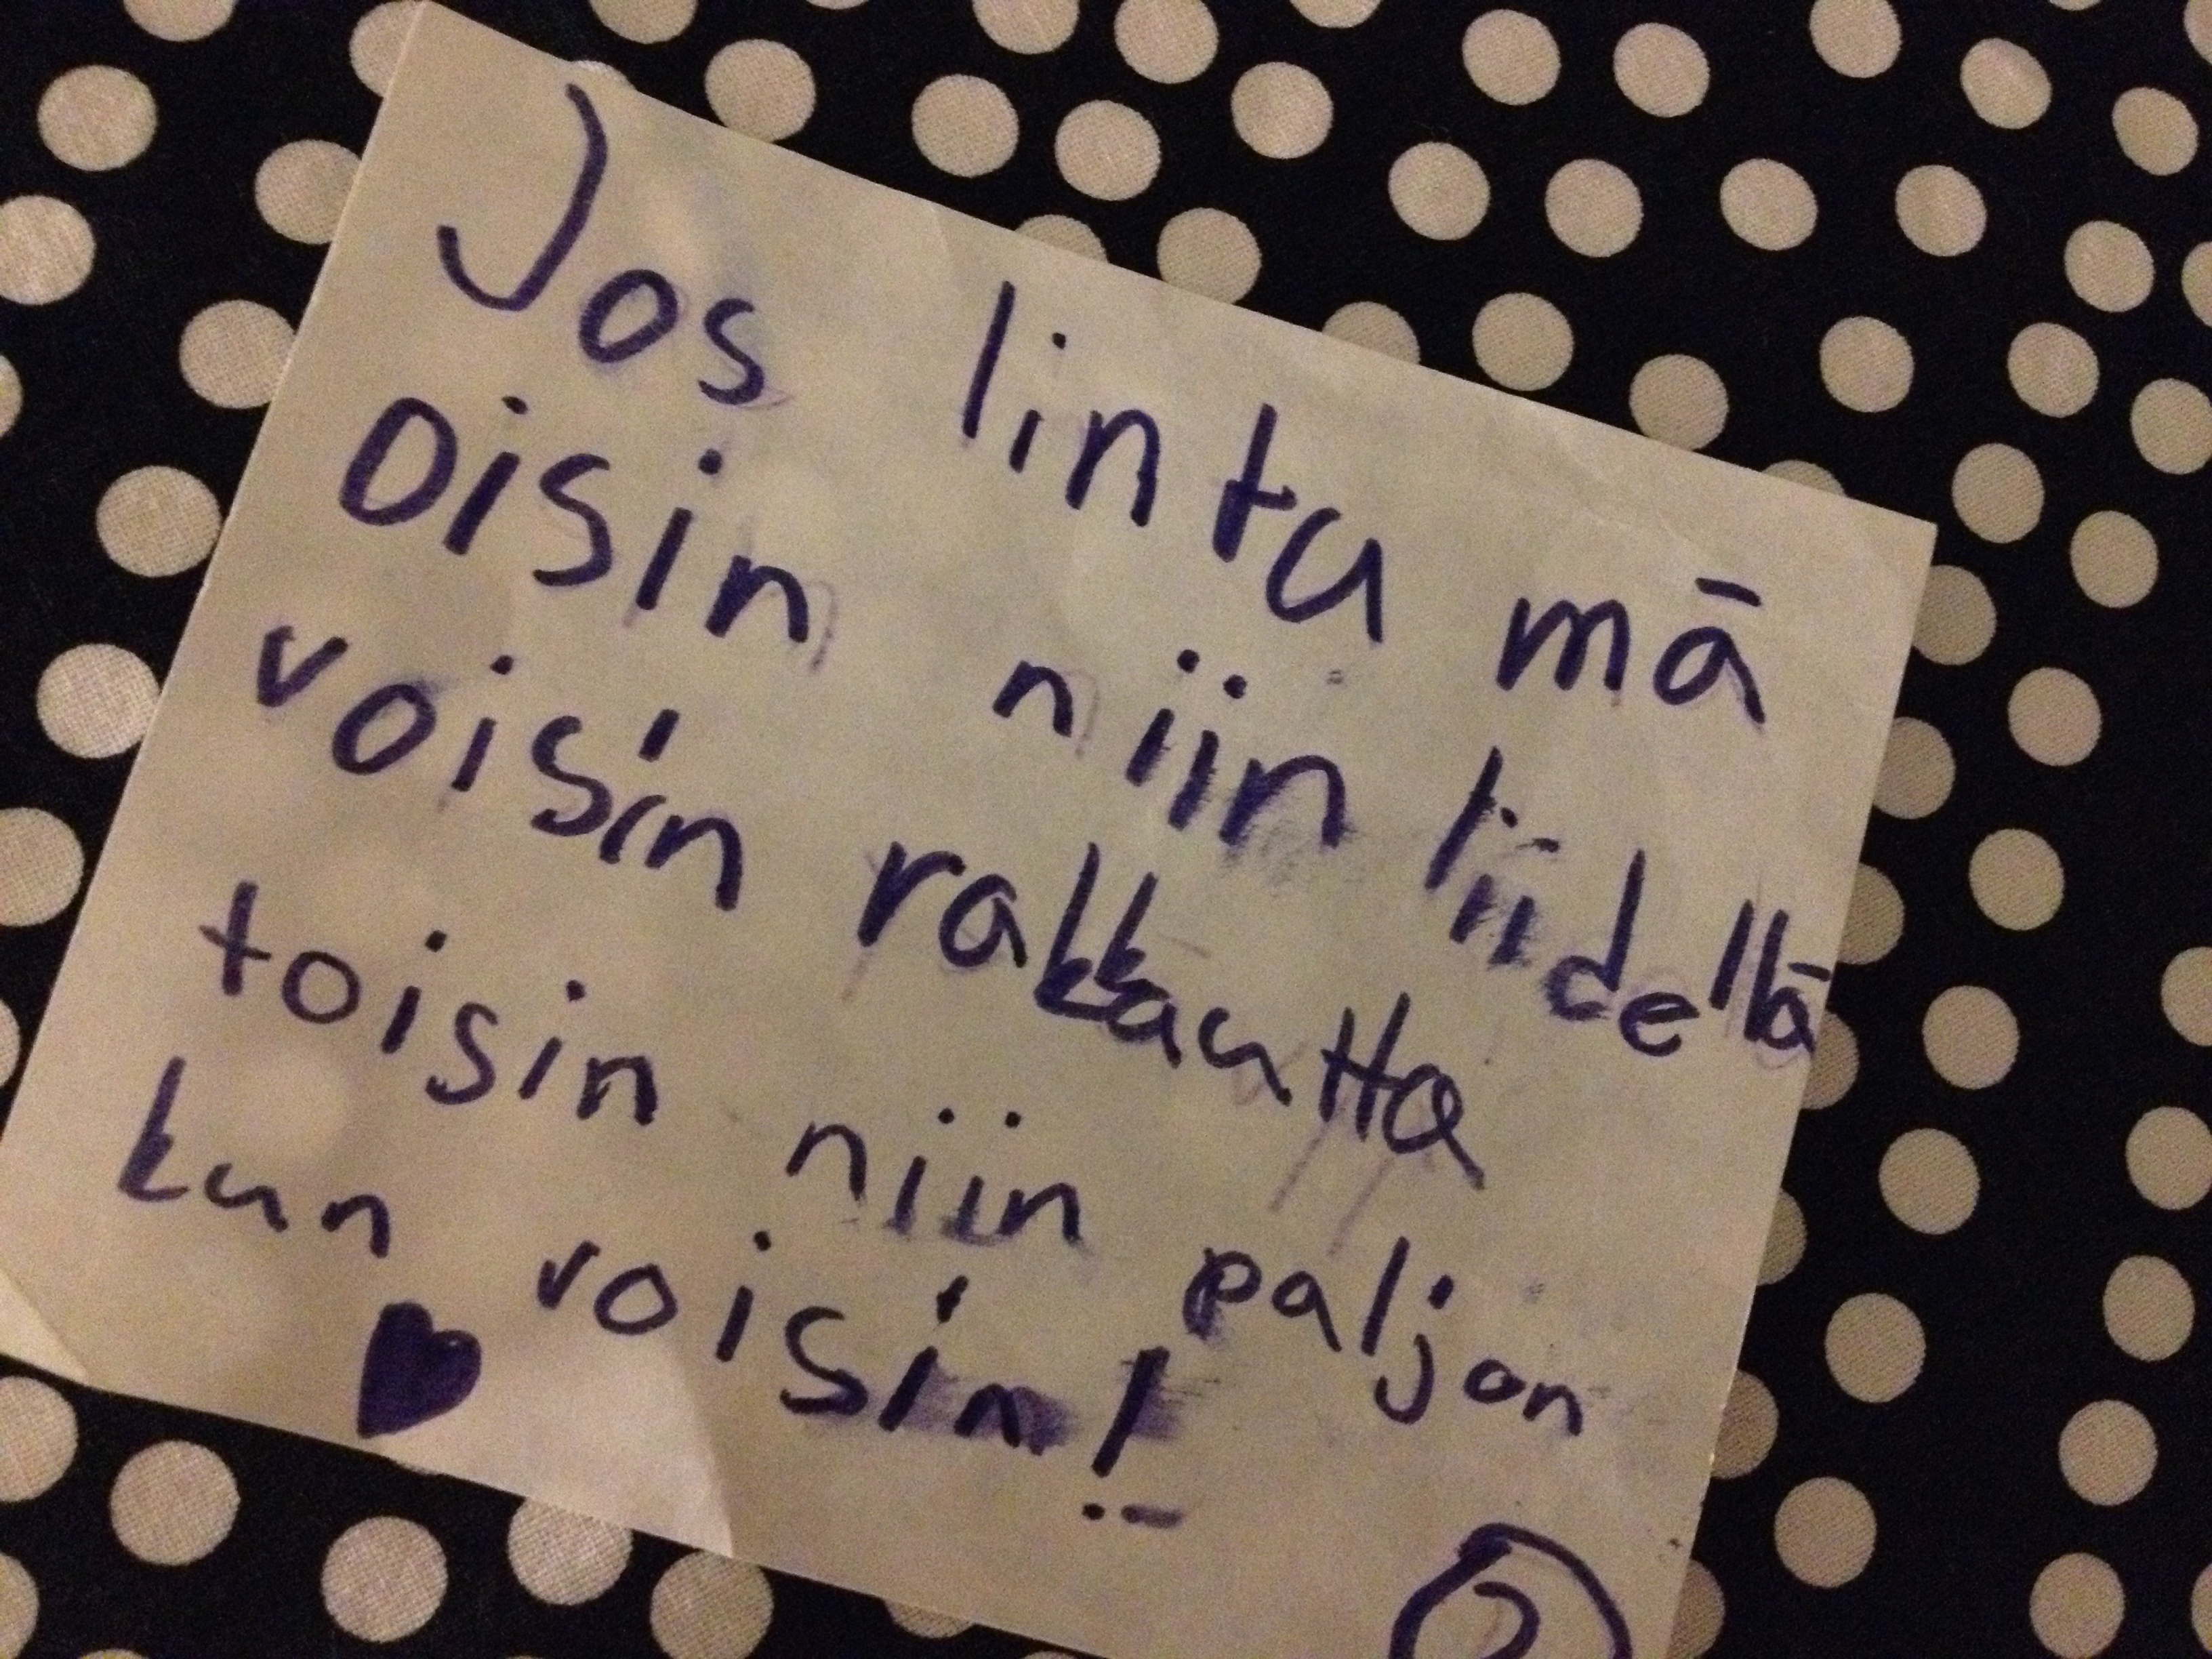 Jos lintu mä
oisin niin liidellä
voisin rakkautta
toisin niin paljon
kun voisin!
2